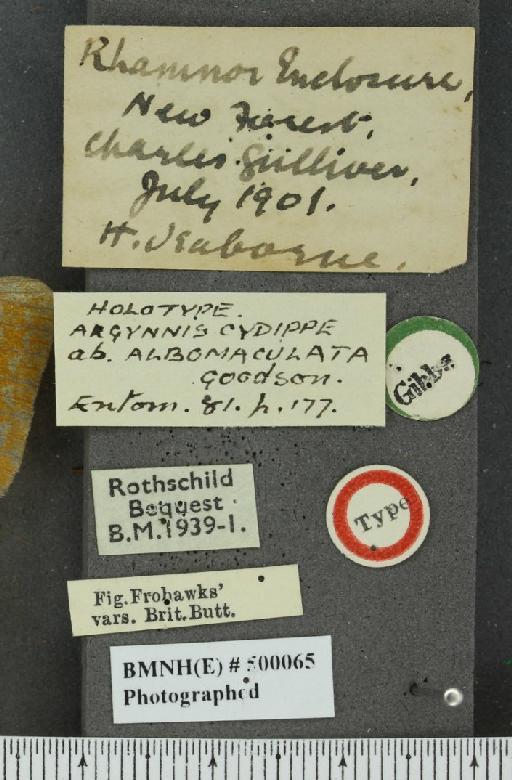 Rhamnor Enclosure,
New Forest,
Charles Gulliver,
July 1901.
H. Seaborne.
HOLOTYPE.
ARGYNNIS CYDIPPE
ab. ALBOMACULATA
Goodson.
Entom. 81. p. 177.
Gibbs
Rothschild
Bequest
B.M.1939-1.
Type
Fig. Frohawks'
vars. Brit. Butt.
BMNH(E) # 500065
Photographed